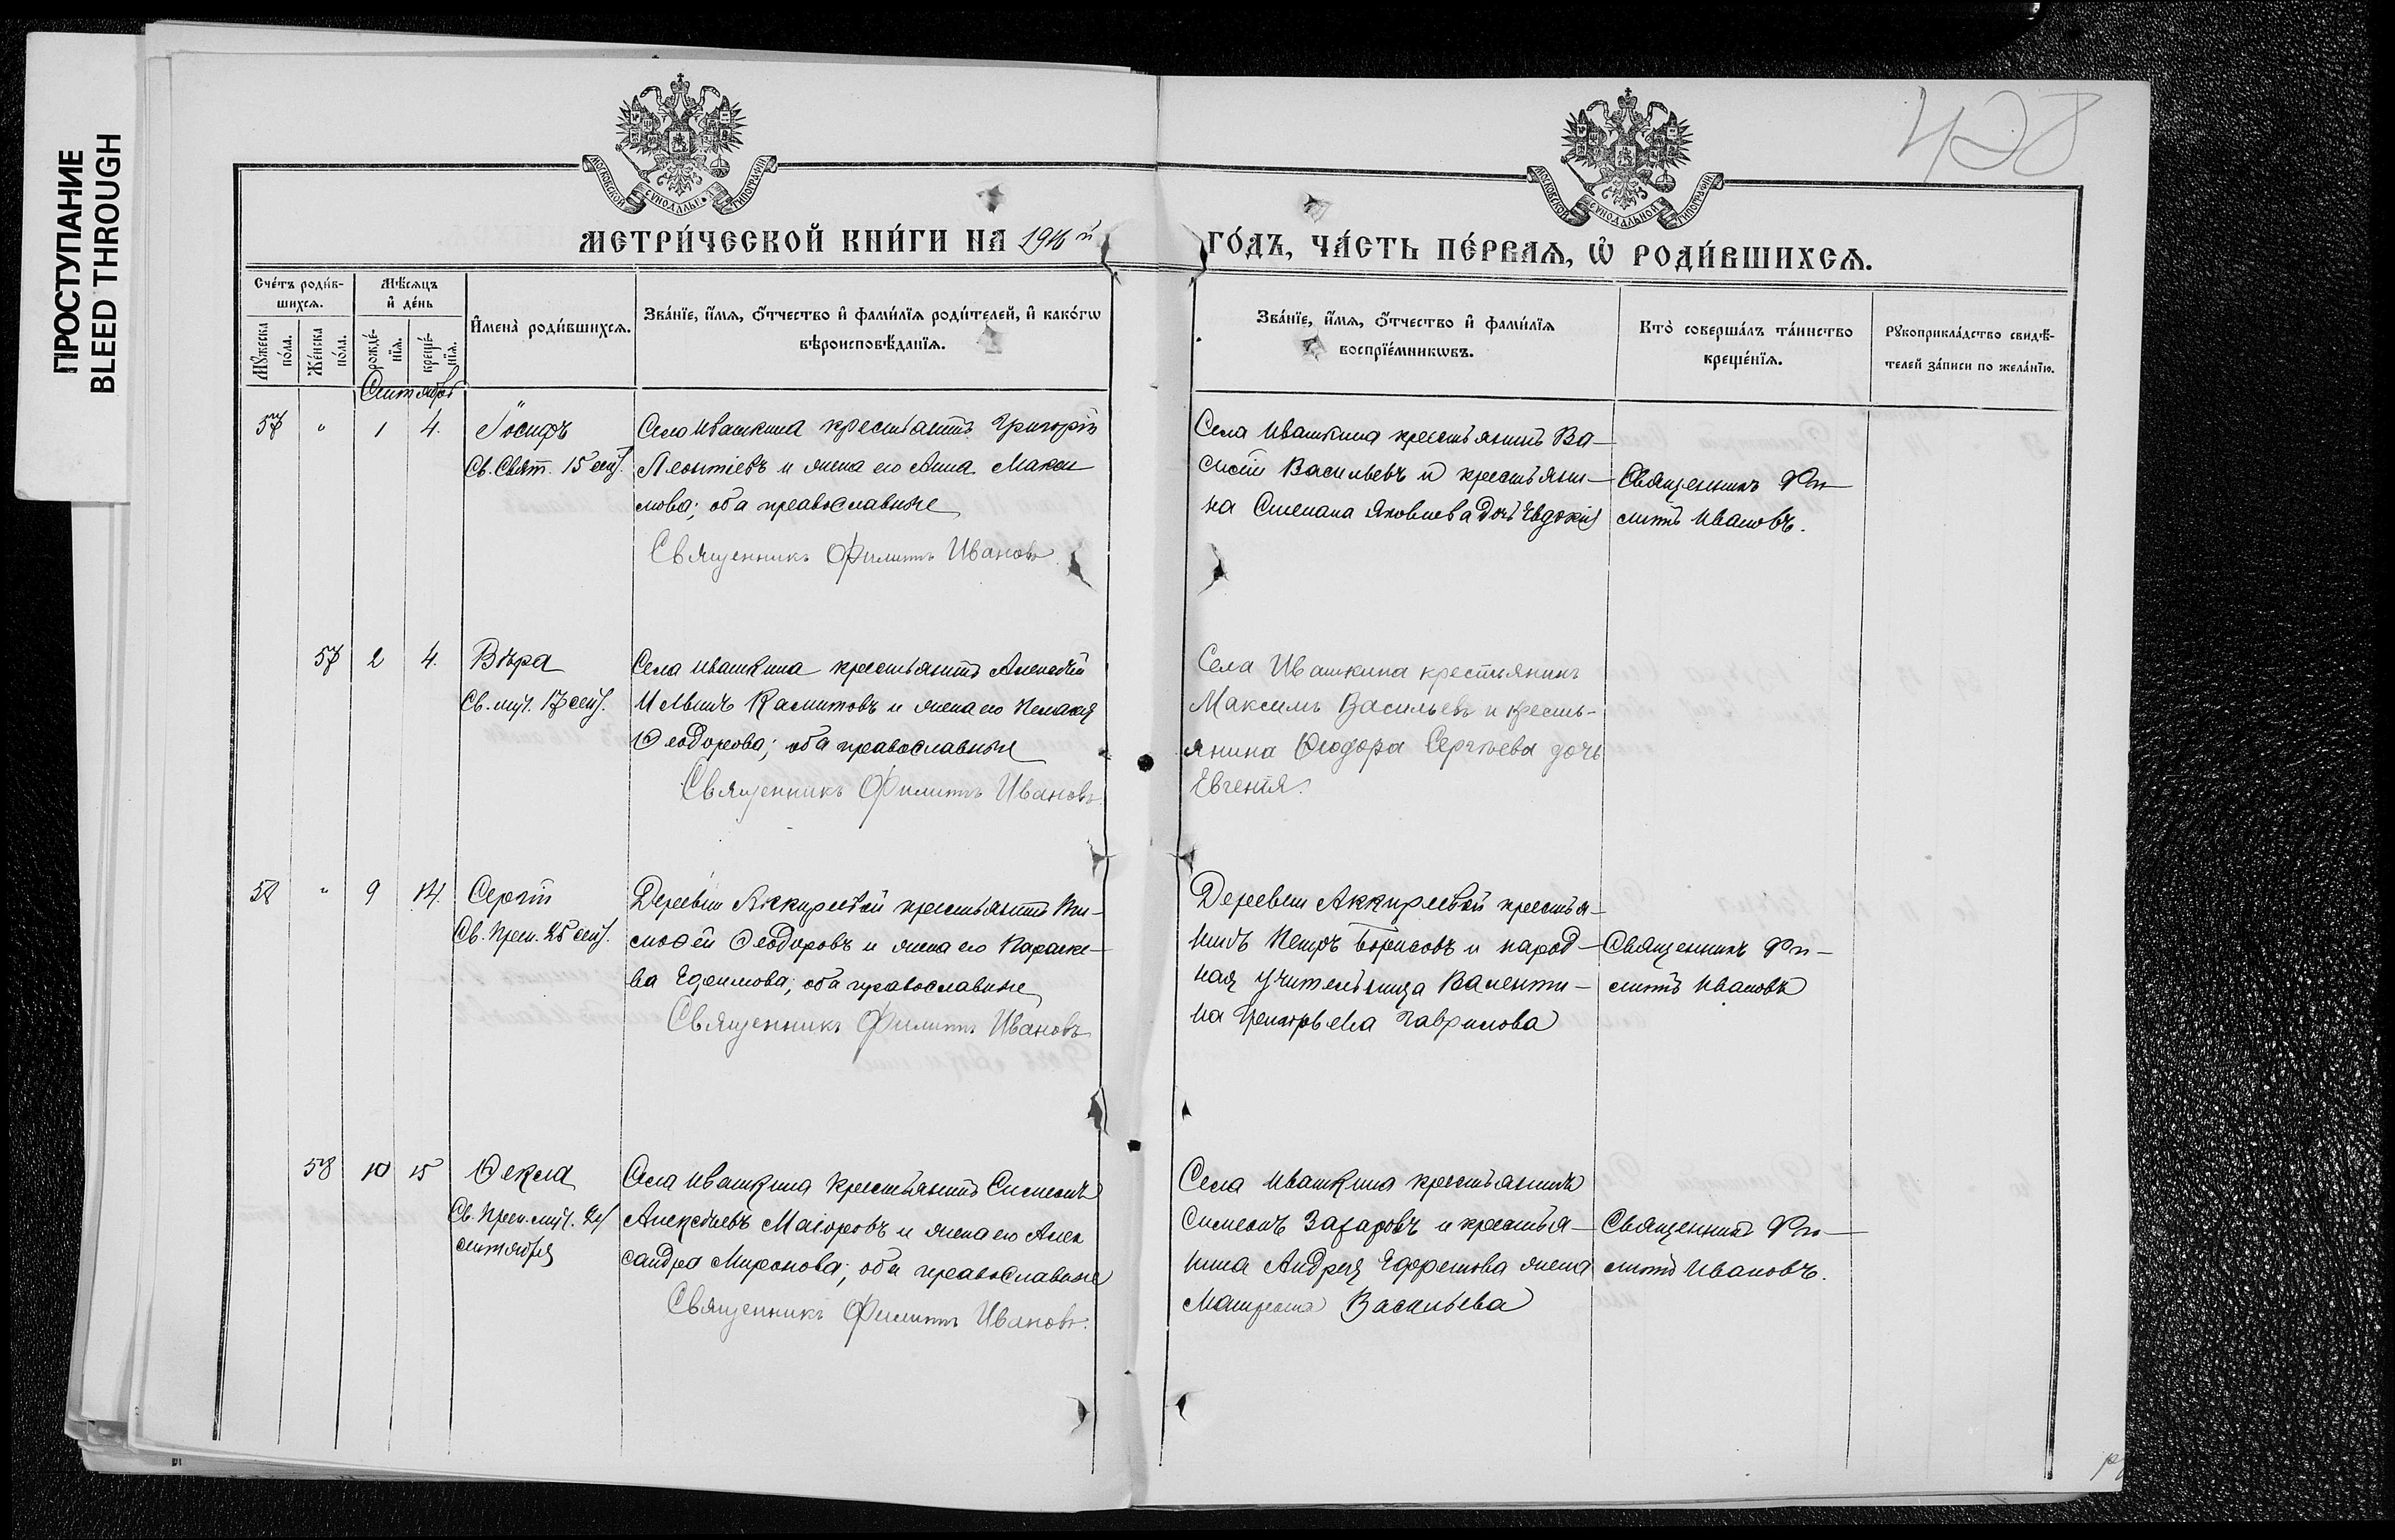 ПРОСТУПАНИЕ
BLEED THROUGH
428
МОСКОВСКОЙ СУНОДАЛЬН. ТИПОГРАФІИ
МОСКОВСКОЙ СУНОДАЛЬНОЙ ТИПОГРАФІИ
МЕТРИ́ЧЕСКОЙ КНИ́ГИ НА 1916 й
ГО́ДЪ, ЧА́СТЬ ПЕ́РВАѦ, Ѡ҆ РОДИ́ВШИХСѦ.
Сче́тъ роди́в-
шихсѧ.
Мꙋ́жеска
по́ла.
Же́нска
по́ла.
Мѣ́сѧцъ
и҆ де́нь
рожде́-
нїѧ.
креще́-
нїѧ.
И҆мена̀ роди́вшихсѧ.
Зва́нїе, и҆́мѧ, ѻ҆́тчество и҆ фами́лїѧ роди́телей, и҆ како́гѡ
вѣроисповѣ́данїѧ.
Зва́нїе, и҆́мѧ, ѻ҆́тчество и҆ фами́лїѧ
воспрїе́мникѡвъ.
Кто̀ соверша́лъ та́инство
креще́нїѧ.
Рꙋкоприкла́дство свидѣ́-
телей за́писи по жела́нїю.
Сентябрь
57 " 1 4.
Іосифъ
Св. Свят. 15 сент.
Села Ивашкина крестьянинъ Григорій
Леонтіевъ и жена его Анна Макси
мова; оба православные
Священникъ Филиппъ Ивановъ.
Села Ивашкина крестьянинъ Ва-
силій Васильевъ и крестьяни-
на Степана Яковлева дочь Евдокія
Священникъ Фи-
липпъ Ивановъ.
57 2 4.
Вѣра
Св. муч. 17 сент.
Села Ивашкина крестьянинъ Алексѣй
Ильичъ Камитовъ и жена его Пелагія
Ѳеодорова; оба православные
Священникъ Филиппъ Ивановъ.
Села Ивашкина крестьянинъ
Максимъ Васильевъ и кресть-
янина Ѳеодора Сергѣева дочь
Евгенія.
58 " 9 14.
Сергій
Св. Преп. 25 сент.
Деревни Аккиревой крестьянинъ Ти-
моѳей Ѳеодоровъ и жена его Параске-
ва Ефимова; оба православные
Священникъ Филиппъ Ивановъ
Деревни Аккиревой крестья-
нинъ Петръ Борисовъ и народ-
ная учительница Валенти-
на Григорьевна Гаврилова
Священникъ Фи-
липпъ Ивановъ
58 10 15
Ѳекла
Св. Преп. муч. 24
сентября
Села Ивашкина крестьянинъ Симеонъ
Алексѣевъ Маіоровъ и жена его Алек
сандра Миронова; оба православные
Священникъ Филиппъ Ивановъ.
Села Ивашкина крестьянинъ
Симеонъ Захаровъ и крестья-
нина Андрея Ефремова жена
Матрона Васильева
Священникъ Фи-
липпъ Ивановъ.